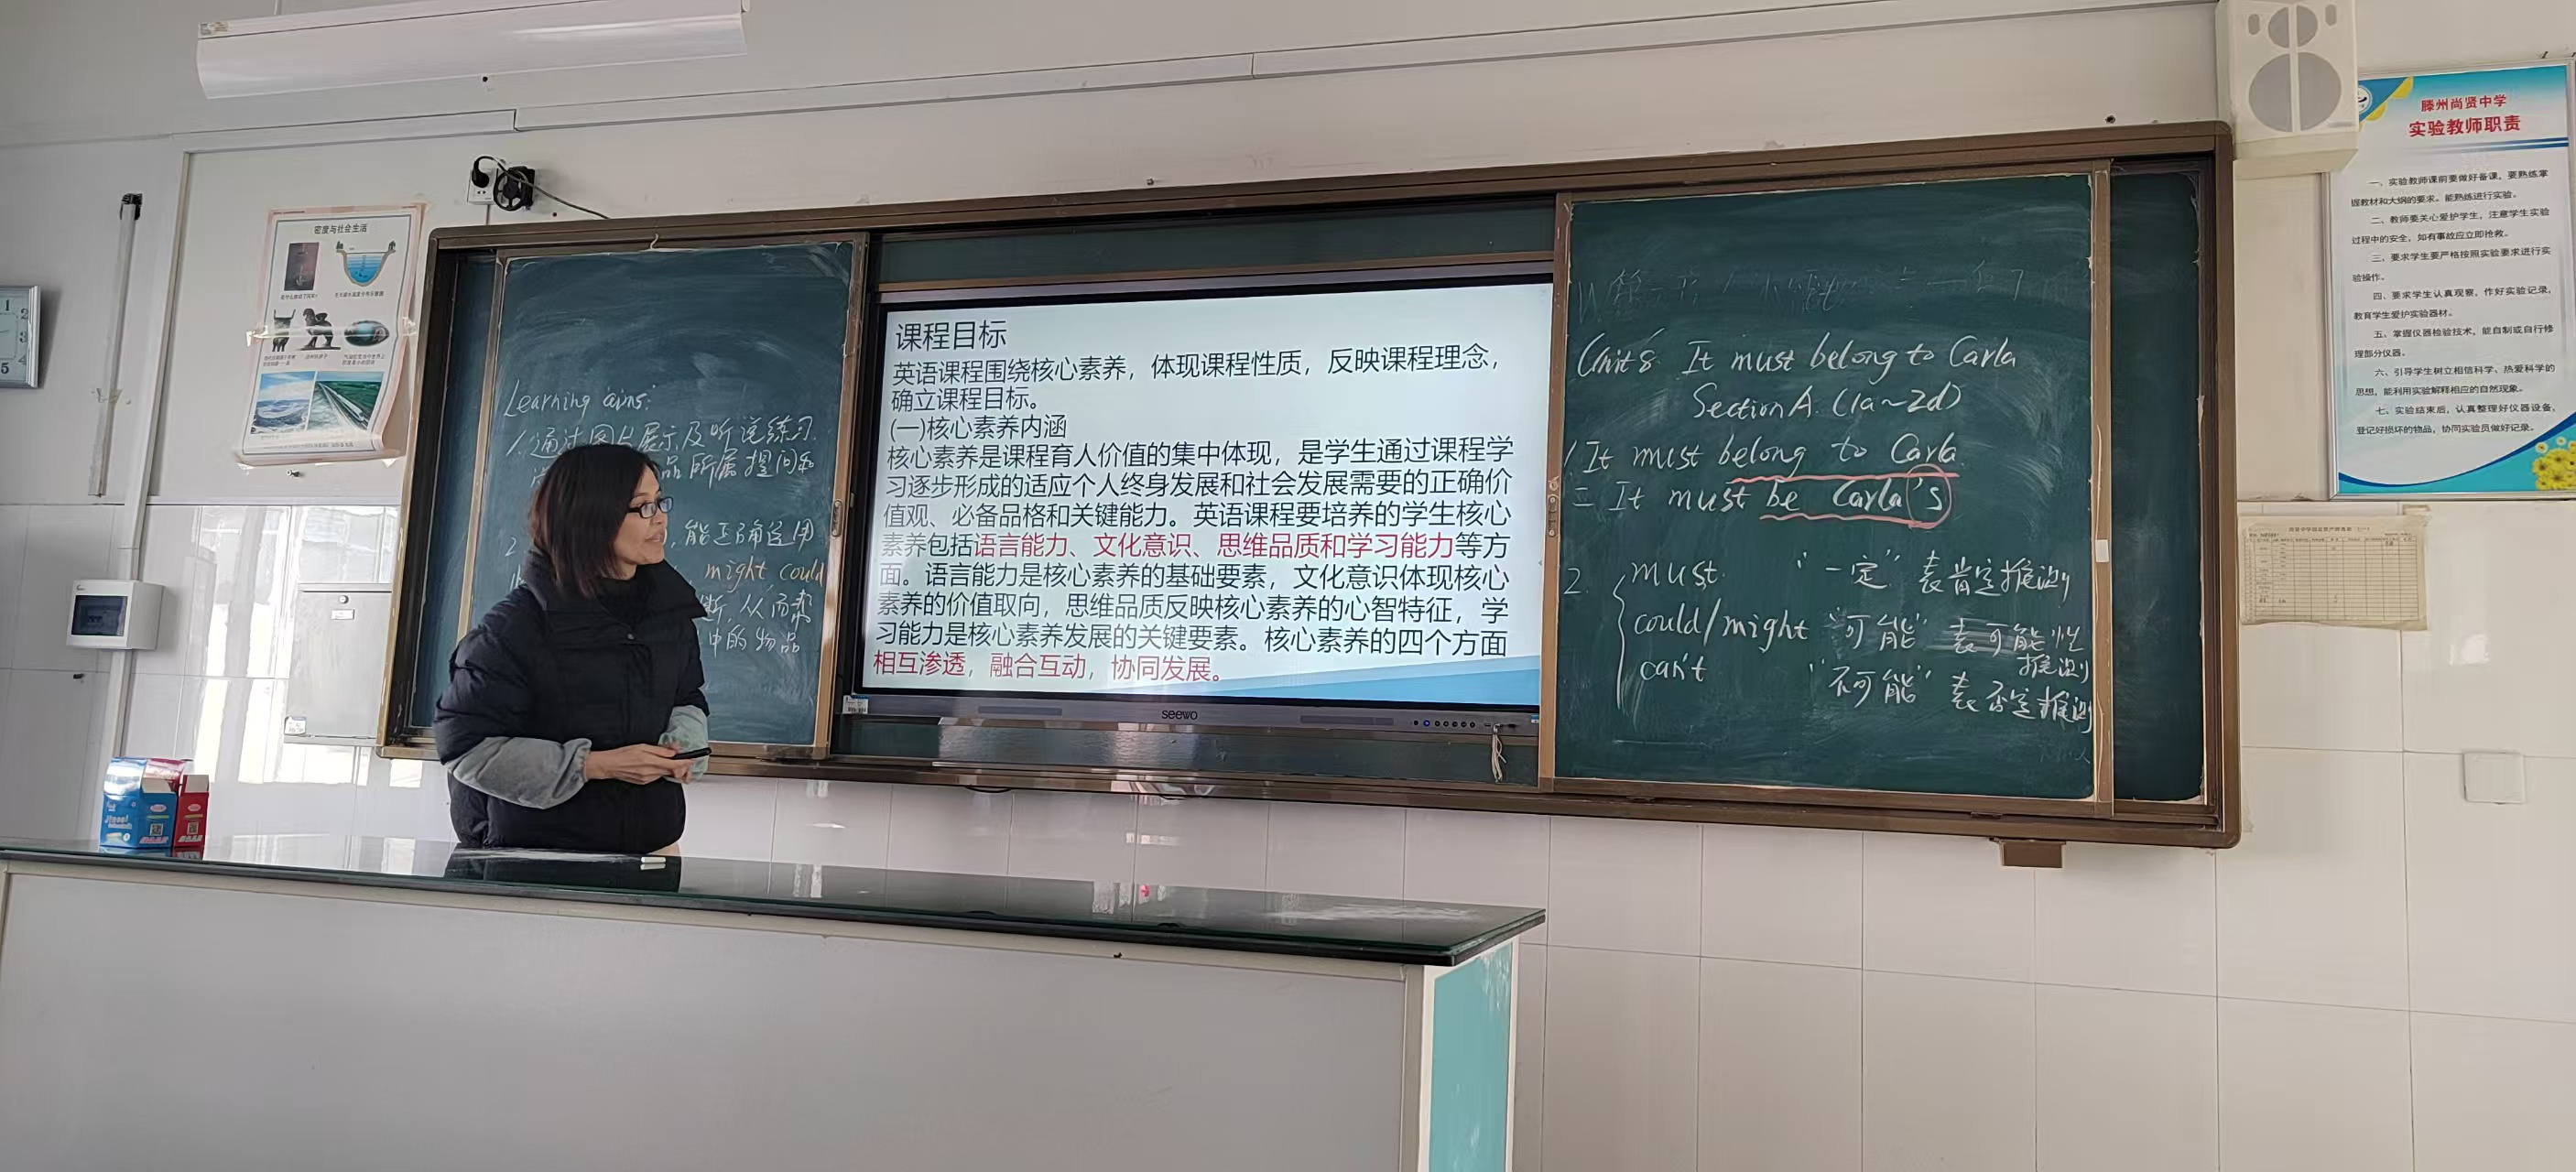 密度与社会生活
Learning aims:
1. 通过图片展示及听说练习
品所属提问和
2
，能正确运用
might could
断，从而帮
中的物品
课程目标
英语课程围绕核心素养，体现课程性质，反映课程理念，
确立课程目标。
(一)核心素养内涵
核心素养是课程育人价值的集中体现，是学生通过课程学
习逐步形成的适应个人终身发展和社会发展需要的正确价
值观、必备品格和关键能力。英语课程要培养的学生核心
素养包括语言能力、文化意识、思维品质和学习能力等方
面。语言能力是核心素养的基础要素，文化意识体现核心
素养的价值取向，思维品质反映核心素养的心智特征，学
习能力是核心素养发展的关键要素。核心素养的四个方面
相互渗透，融合互动，协同发展。
seewo
Unit 8. It must belong to Carla
Section A. (1a~2d)
1. It must belong to Carla.
= It must be Carla's
2. must. “一定” 表肯定推测
could/might “可能” 表可能性
推测
can't “不可能” 表否定推测
滕州尚贤中学
实验教师职责
一、实验教师课前要做好备课，要熟练掌
握教材和大纲的要求。能熟练进行实验。
二、教师要关心爱护学生，注意学生实验
过程中的安全，如有事故应立即抢救。
三、要求学生要严格按照实验要求进行实
验操作。
四、要求学生认真观察，作好实验记录，
教育学生爱护实验器材。
五、掌握仪器检验技术，能自制或自行修
理部分仪器。
六、引导学生树立相信科学、热爱科学的
思想，能利用实验解释相应的自然现象。
七、实验结束后，认真整理好仪器设备、
登记好损坏的物品，协同实验员做好记录。
1
2
3
4
5